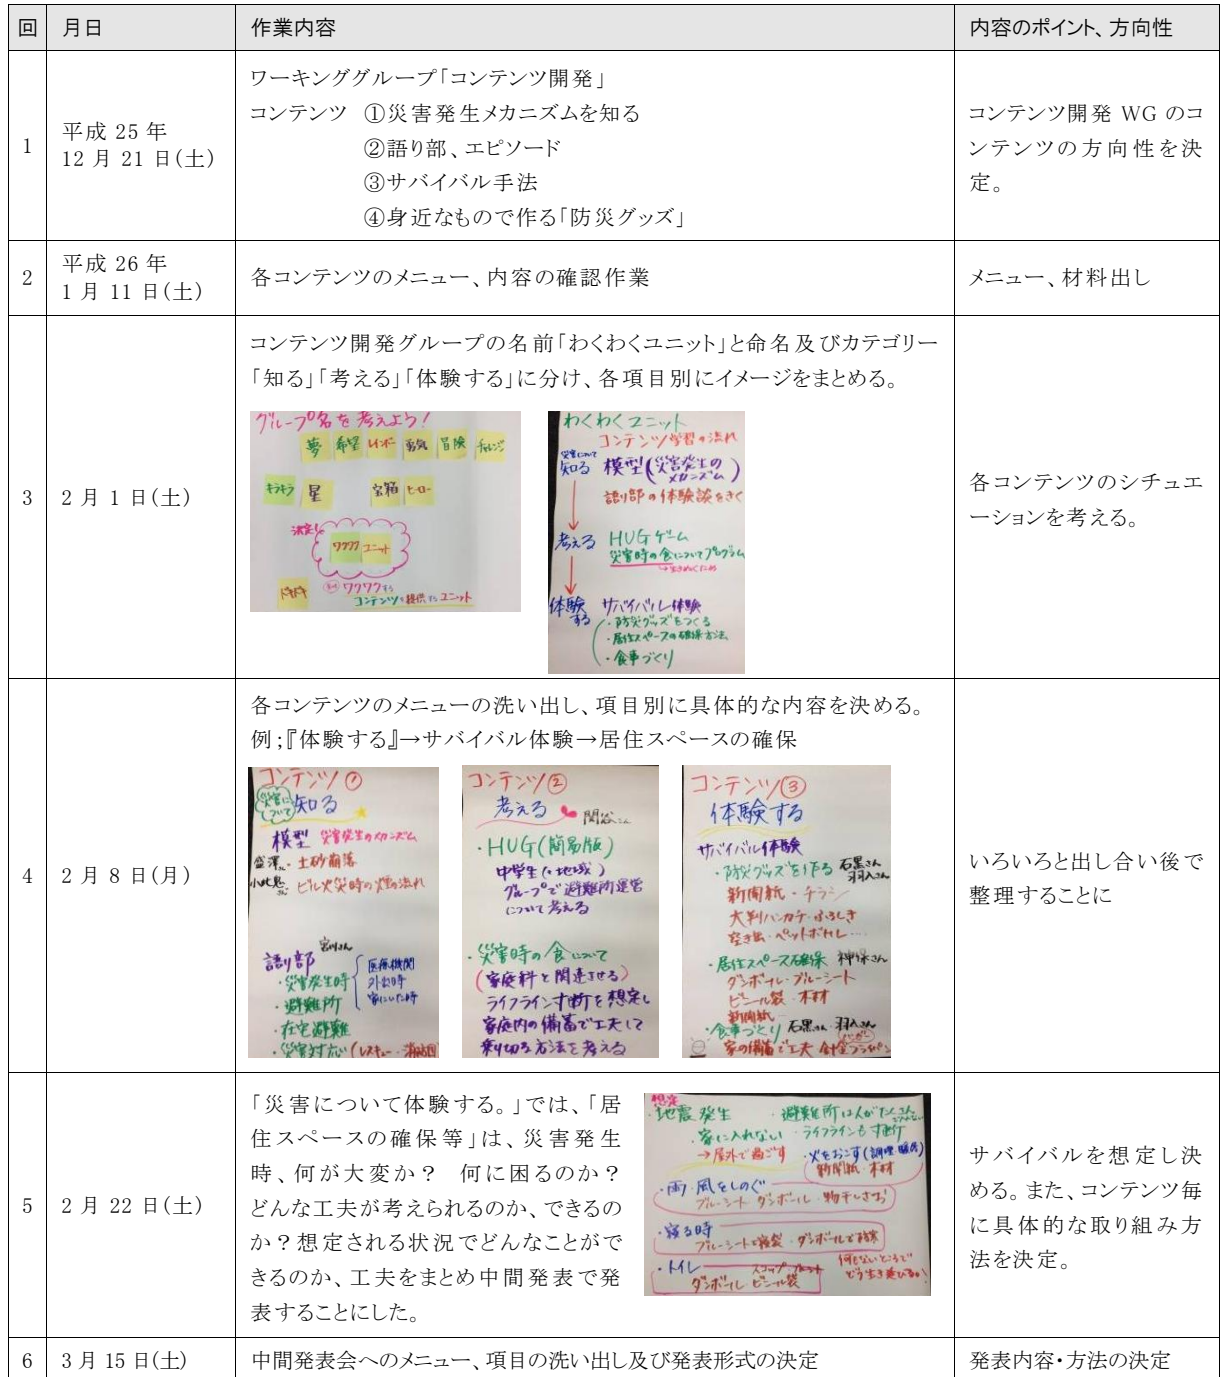 回 月日 作業内容 内容のポイント、方向性
1
平成 25 年
12 月 21 日(土)
ワーキンググループ「コンテンツ開発」
コンテンツ ①災害発生メカニズムを知る
②語り部、エピソード
③サバイバル手法
④身近なもので作る「防災グッズ」
コンテンツ開発 WG のコ
ンテンツの方向性を決
定。
2
平成 26 年
1 月 11 日(土)
各コンテンツのメニュー、内容の確認作業
メニュー、材料出し
3
2 月 1 日(土)
コンテンツ開発グループの名前「わくわくユニット」と命名及びカテゴリー
「知る」「考える」「体験する」に分け、各項目別にイメージをまとめる。
グループ名を考えよう!
夢 希望 レインボー 勇気 冒険 チャレンジ
キラキラ 星 宝箱 ヒーロー
決定!
ワクワク ユニット
ドキドキ
ワクワクする
コンテンツを提供するユニット
わくわくユニット
コンテンツ学習の流れ
災害について
知る 模型(災害発生のメカニズム)
語り部の体験談をきく
考える HUGゲーム
災害時の食についてプログラム
体験する サバイバル体験
・防災グッズをつくる
・居住スペースの確保方法
・食事づくり
各コンテンツのシチュエ
ーションを考える。
4
2 月 8 日(月)
各コンテンツのメニューの洗い出し、項目別に具体的な内容を決める。
例;『体験する』→サバイバル体験→居住スペースの確保
コンテンツ①
災害について 知る
模型 災害発生のメカニズム
・土砂崩落
ビル火災時の煙の流れ
語り部
・災害発生時
医療機関
外出時
家にいた時
・避難所
・在宅避難
・災害対応(レスキュー・消防団
コンテンツ②
考える 関谷さん
・HUG(簡易版)
中学生(・地域)
グループで避難所運営
について考える
・災害時の食について
(家庭科と関連させる)
ライフライン寸断を想定し
家庭内の備蓄で工夫して
乗り切る方法を考える
コンテンツ③
体験する
サバイバル体験
・防災グッズを作る 石黒さん 羽入さん
新聞紙・チラシ
大判ハンカチ・ふろしき
空き缶・ペットボトル…
・居住スペース確保 神保さん
ダンボール・ブルーシート
ビニール袋・木材
新聞紙
・食事づくり 石黒さん 羽入さん
家の備蓄で工夫
いろいろと出し合い後で
整理することに
5
2 月 22 日(土)
「災害について体験する。」では、「居
住スペースの確保等」は、災害発生
時、何が大変か? 何に困るのか?
どんな工夫が考えられるのか、できるの
か?想定される状況でどんなことがで
きるのか、工夫をまとめ中間発表で発
表することにした。
想定
・地震発生 ・避難所は人がたくさん
・家に入れない ・ライフラインも寸断
→屋外で過ごす ・火をおこす(調理・暖房)
新聞紙・木材
・雨・風をしのぐ
ブルーシート ダンボール・物干しざお
・寝る時
ブルーシートで寝袋・ダンボールで
・トイレ
ダンボール・ビニール袋
何もないところで
どう生き延びるか!
サバイバルを想定し決
める。また、コンテンツ毎
に具体的な取り組み方
法を決定。
6
3 月 15 日(土)
中間発表会へのメニュー、項目の洗い出し及び発表形式の決定
発表内容・方法の決定